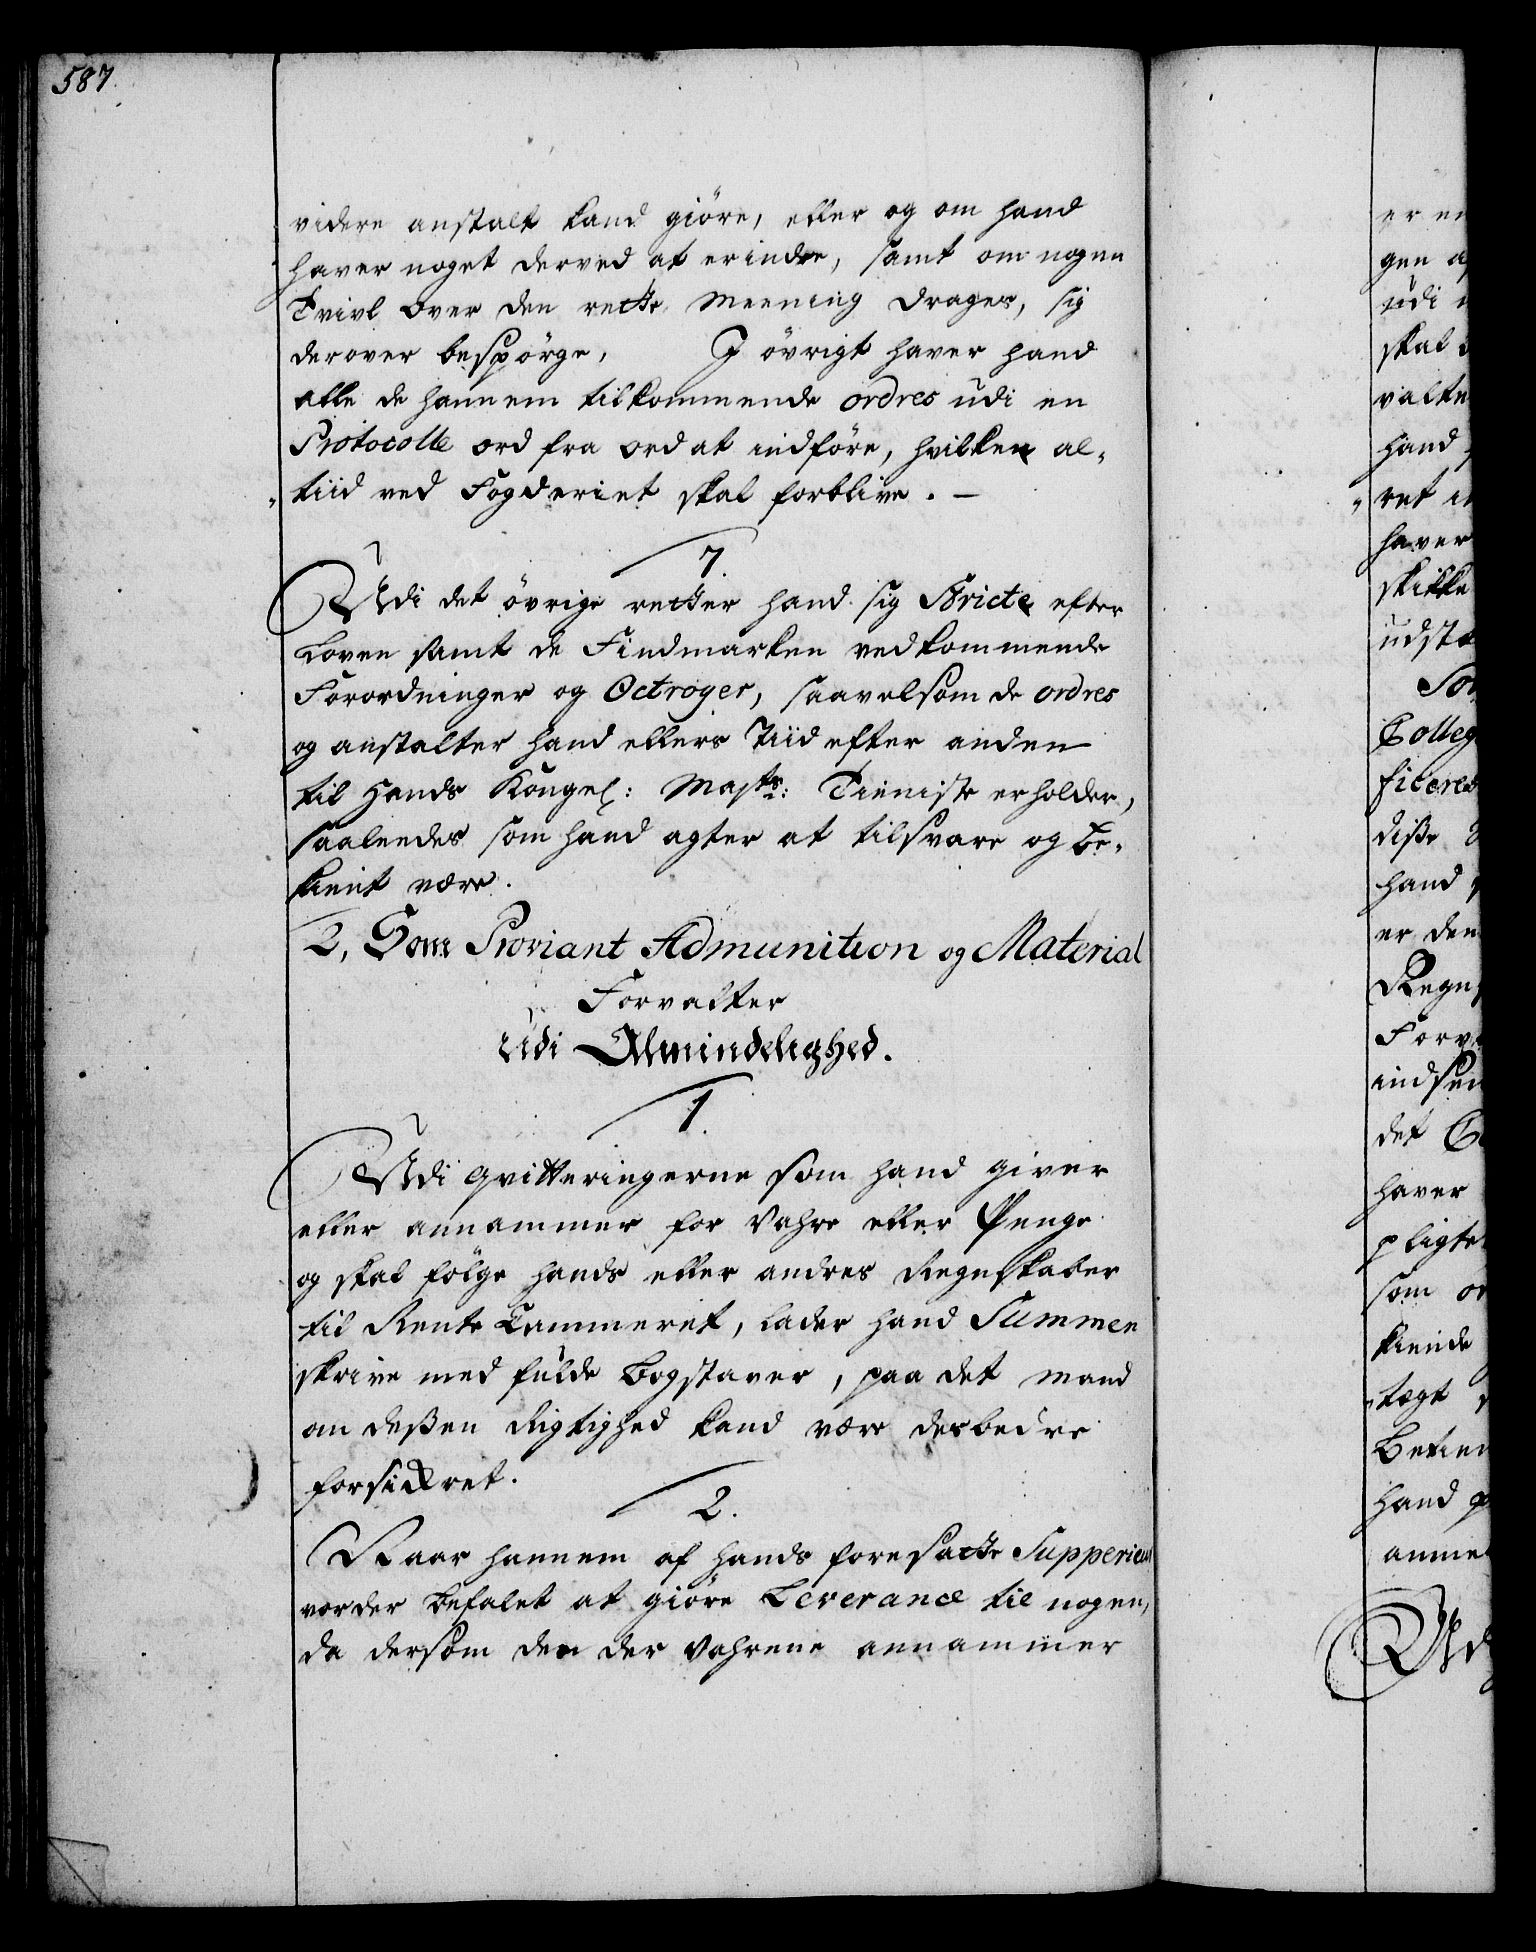 587.
videre anstalt kand giöre, eller og om hand
haver noget derved at erindre, samt om nogen
Tvivl over den rette Meening drages, sig
derover bespörge, J övrigt haver hand
alle de hannem tilkommende ordres udi en
Protocolle ord fra ord at indföre, hvilken al„
„tiid ved Fogderiet skal forblive. —
7.
Udi det övrige retter hand sig Stricte efter
Loven samt de Findmarken vedkommende
Forordninger og Octroyer, saavelsom de ordres
og anstalter hand ellers Tiid efter anden
til Hands Kongel: Majts: Tieniste erholder,
saaleedes som hand agter at tilsvare og be„
kient være.
2, Som Proviant Admunition og Material
Forvalter
Udi Almindelighed.
1.
Udi qvitteringerne som hand giver
eller annammer for Vahre eller Penge
og skal fölge hands eller andres Regnskaber
til Rente Cammeret, lader hand Summen
skrive med fulde Bogstaver, paa det mand
om deßen Rigtighed kand være desbedre
forsikkret.
2.
Naar hannem af hands foresatte Supperieur
vorder befalet at giöre Leverance til nogen,
da dersom den der Vahrene annammer
gen
udi
skal
valte
hand
„ret
haver
skikke
udstæ
Colleg
ficered
diße
hand
er den
Regn
Forva
indsen
det
haver
pligte
som
kiende
„tægt
Betien
hand
annam
Udi